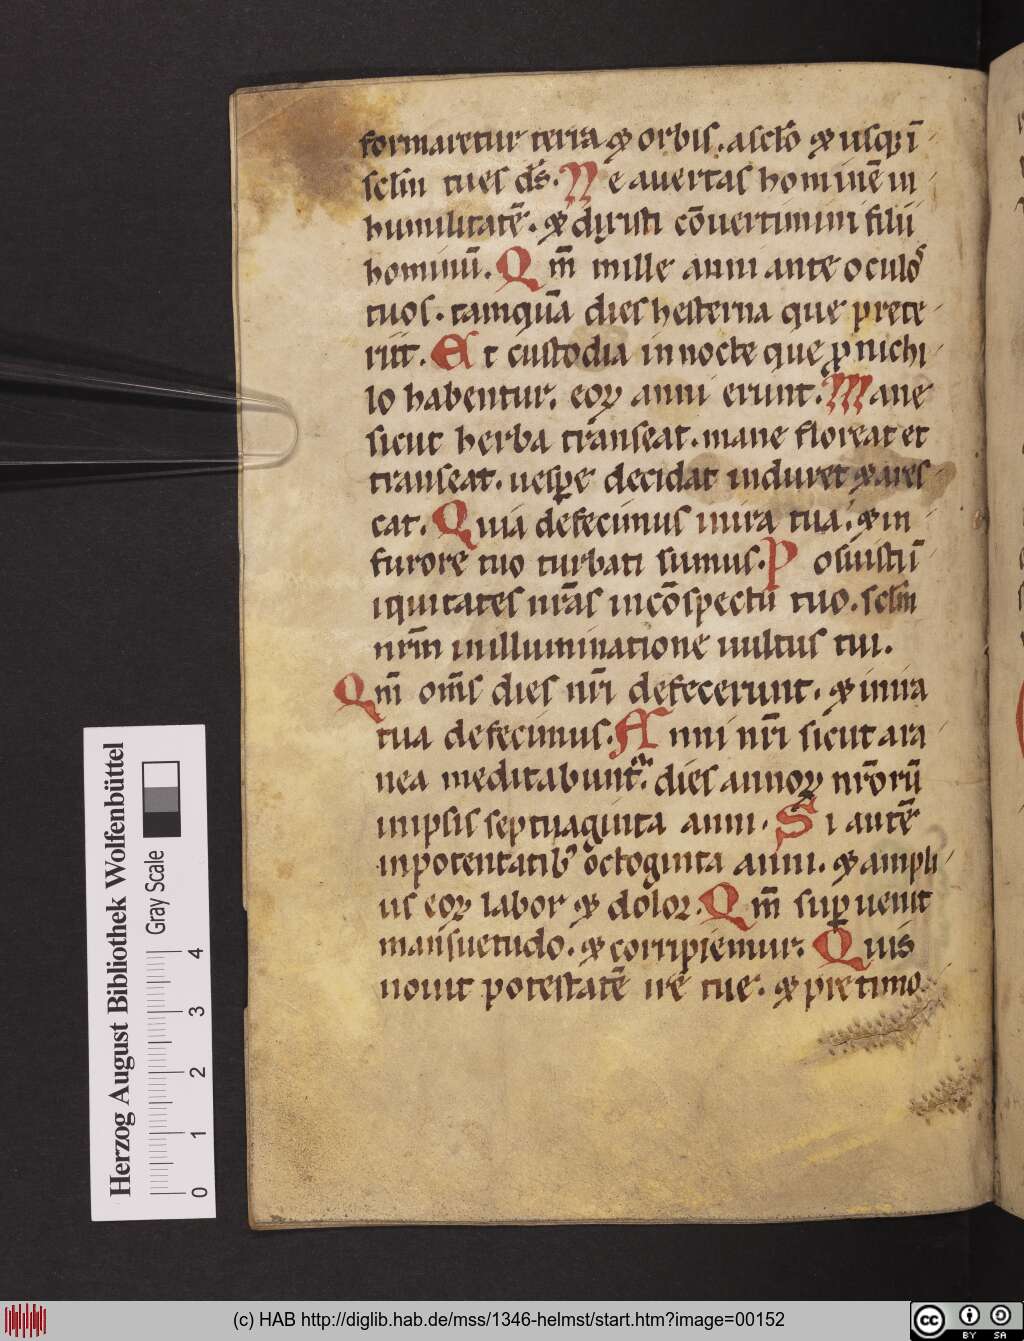 formaretur terra ⁊ orbis. a sclo ⁊ usq; ī
sclm tues ds̄. Ne auertas hominē in
humilitatē. ⁊ dixisti cōuertimini filii
hominū. Qm̄ mille anni ante oculos
tuos. tamquā dies hesterna que prete
riit. Et custodia in nocte que ꝓ nichi
lo habentur. eoꝝ anni erunt. Mane
sicut herba transeat. mane floreat et
transeat. uespe decidat induret ⁊ ares
cat. Quia defecimus in ira tua. ⁊ in
furore tuo turbati sumus. Posuisti
iquitates nr̄as in cōspectu tuo. sclm
nrm̄ in illuminatione uultus tui.
Qm̄ om̄s dies nr̄i defecerunt. ⁊ in ira
tua defecimus. Anni nr̄i sicut ara
nea meditabunt᷑. dies annoꝝ nr̄orū
in ipsis septuaginta anni. Si autē
in potentatib; octoginta anni. ⁊ ampli
us eoꝝ labor ⁊ dolor. Qm̄ suꝑuenit
mansuetudo. ⁊ corripiemur. Quis
nouit potestatē ire tue. ⁊ pre timo
Herzog August Bibliothek Wolfenbüttel
Gray Scale
0 1 2 3 4
(c) HAB http://diglib.hab.de/mss/1346-helmst/start.htm?image=00152
cc BY SA